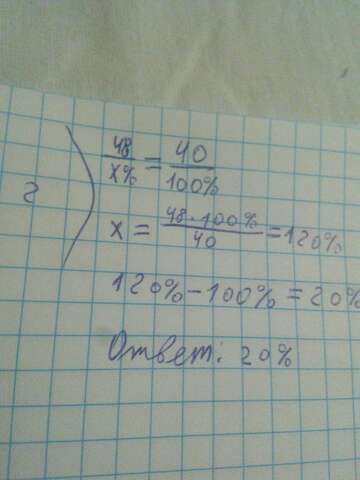 2)
48/x% = 40/100%
x = 48·100%/40 = 120%
120% - 100% = 20%
Ответ: 20%